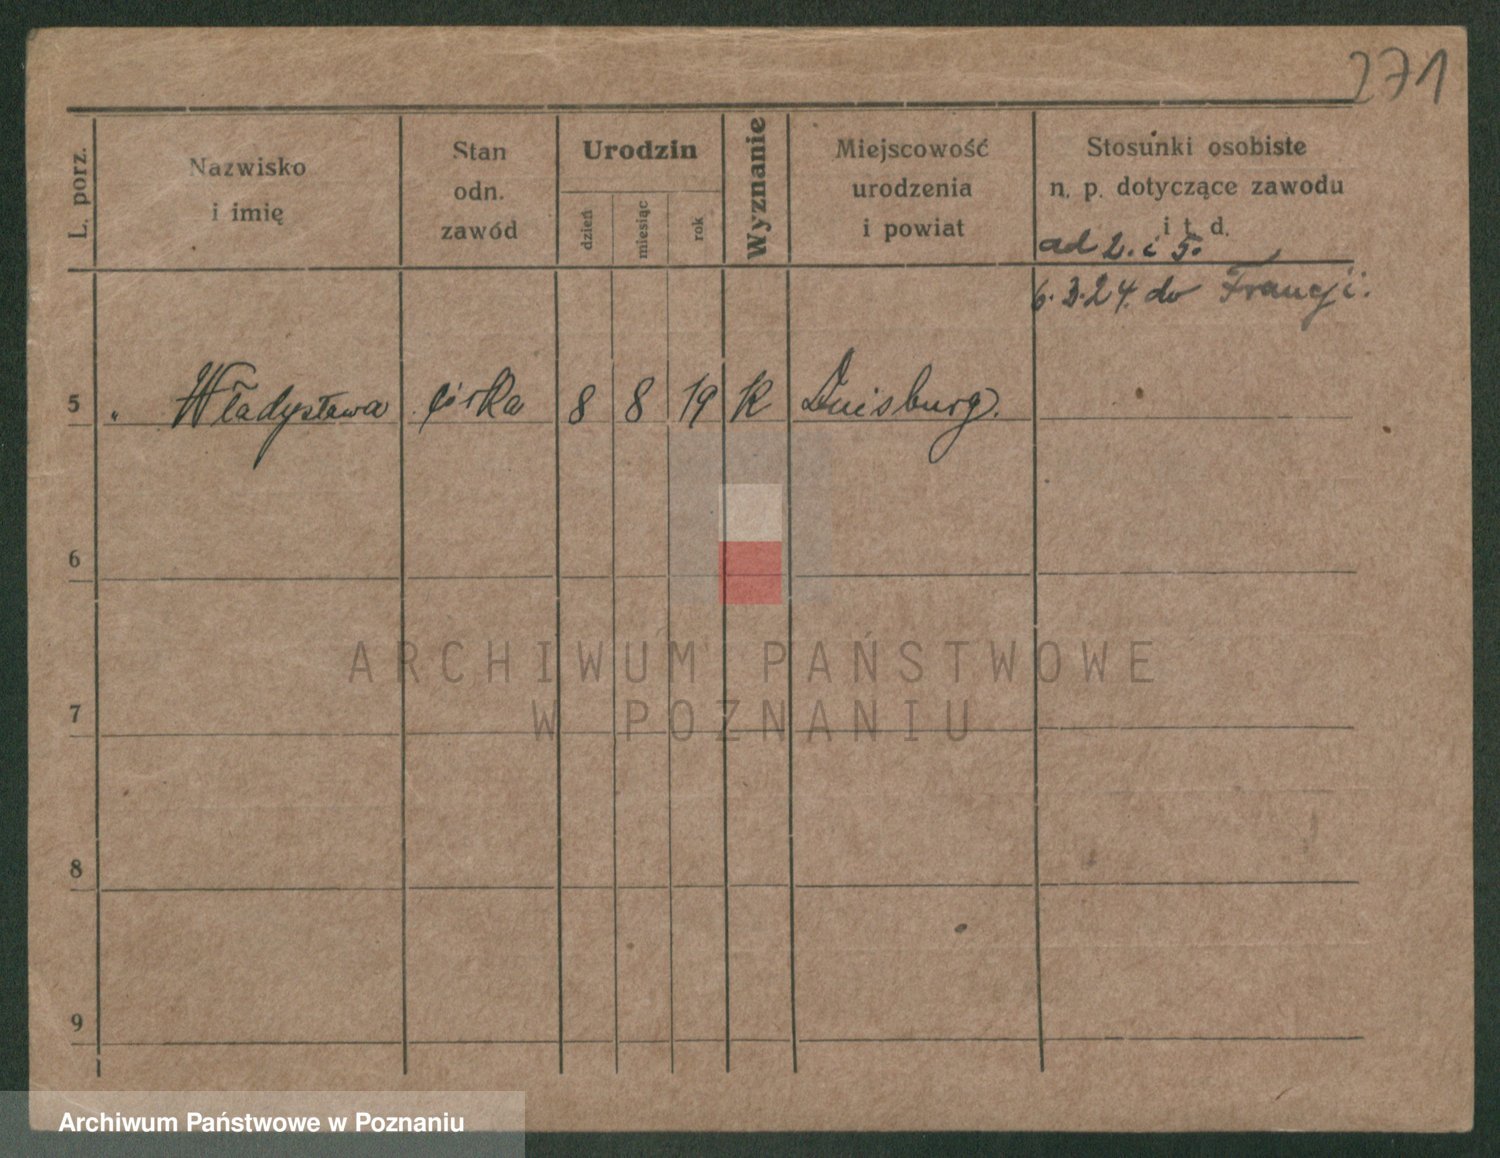 271
L. porz.
Nazwisko
i imię
Stan
odn.
zawód
Urodzin
dzień
miesiąc
rok
Wyznanie
Miejscowość
urodzenia
i powiat
Stosunki osobiste
n. p. dotyczące zawodu
i t. d.
ad 2. i 5.
6.3.24. do Francji.
5 " Władysława córka 8 8 19 k Duisburg.
6
7
8
9
ARCHIWUM PAŃSTWOWE
W POZNANIU
Archiwum Państwowe w Poznaniu